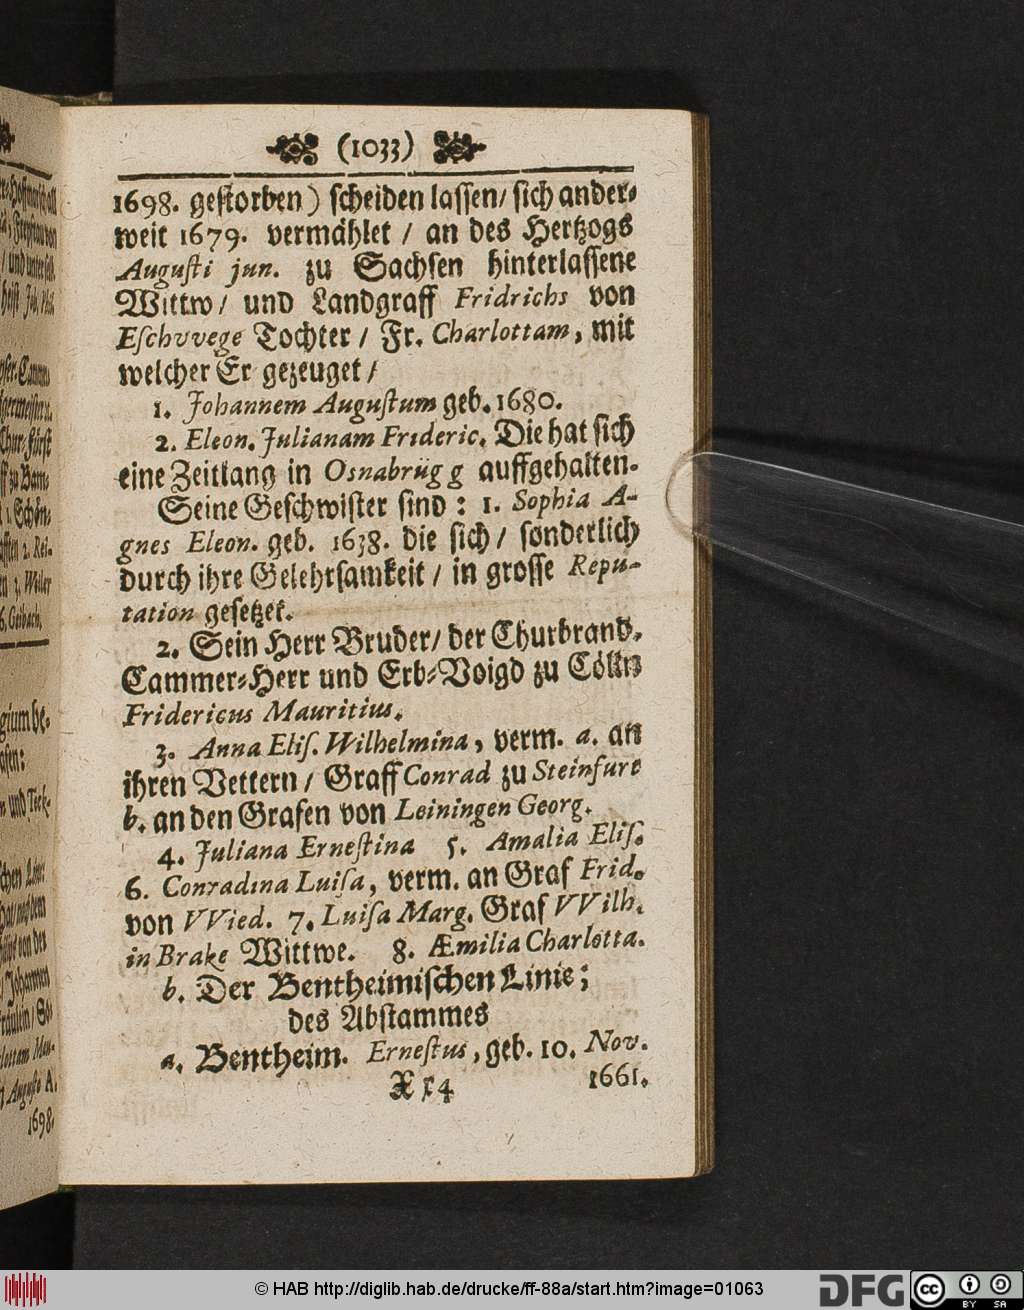 (1033)
1698. gestorben) scheiden lassen/ sich ander⸗
weit 1679. vermählet / an des Hertzogs
Augusti jun. zu Sachsen hinterlassene
Wittw/ und Landgraff Fridrichs von
Eschvvege Tochter / Fr. Charlottam, mit
welcher Er gezeuget /
1. Johannem Augustum geb. 1680.
2. Eleon. Julianam Frideric. Die hat sich
eine Zeitlang in Osnabrügg auffgehalten.
Seine Geschwister sind : 1. Sophia A-
gnes Eleon. geb. 1638. die sich/ sonderlich
durch ihre Gelehrsamkeit / in grosse Repu-
tation gesetzet.
2. Sein Herr Bruder/ der Churbrand.
Cammer⸗Herr und Erb⸗Voigd zu Cölln
Fridericus Mauritius.
3. Anna Elis. Wilhelmina, verm. a. an
ihren Vettern / Graff Conrad zu Steinfurt
b. an den Grafen von Leiningen Georg.
4. Juliana Ernestina 5. Amalia Elis.
6. Conradina Luisa, verm. an Graf Frid.
von VVied. 7. Luisa Marg. Graf VVilh.
in Brake Wittwe. 8. Æmilia Charlotta.
b. Der Bentheimischen Linie;
des Abstammes
a. Bentheim. Ernestus, geb. 10. Nov.
Xx4 1661.
© HAB http://diglib.hab.de/drucke/ff-88a/start.htm?image=01063
DFG
cc BY SA